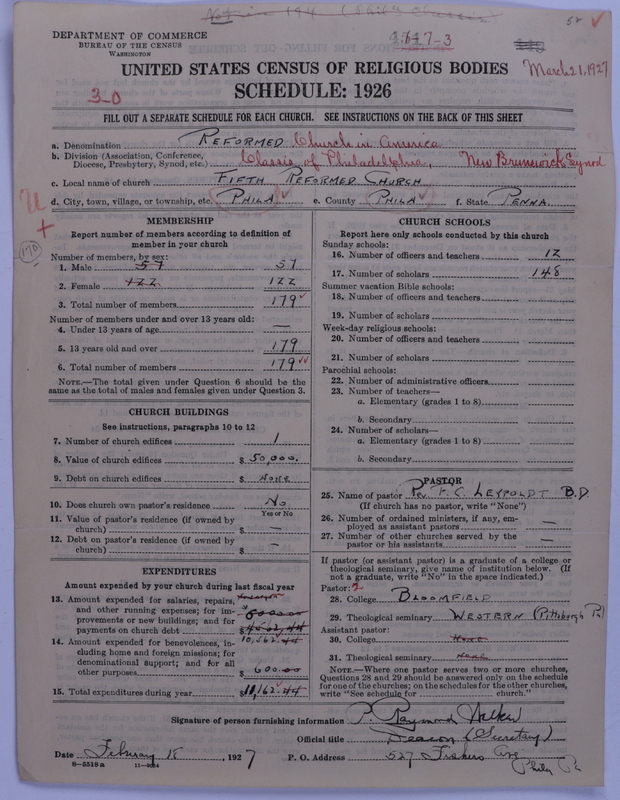 58
4647-3
DEPARTMENT OF COMMERCE
BUREAU OF THE CENSUS
WASHINGTON
March 21, 1927
UNITED STATES CENSUS OF RELIGIOUS BODIES
SCHEDULE: 1926
3-0
FILL OUT A SEPARATE SCHEDULE FOR EACH CHURCH. SEE INSTRUCTIONS ON THE BACK OF THIS SHEET
a. Denomination REFORMED Church in America
b. Division (Association, Conference, Diocese, Presbytery, Synod, etc.) Classis of Philadelphia, New Brunswick Synod
c. Local name of church FIFTH REFORMED CHURCH
d. City, town, village, or township, etc. PHILA e. County PHILA f. State PENNA.
U
170
MEMBERSHIP
Report number of members according to definition of member in your church
Number of members, by sex:
1. Male 57 57
2. Female 122 122
3. Total number of members 179
Number of members under and over 13 years old:
4. Under 13 years of age —
5. 13 years old and over 179
6. Total number of members 179
NOTE.—The total given under Question 6 should be the same as the total of males and females given under Question 3.
CHURCH BUILDINGS
See instructions, paragraphs 10 to 12
7. Number of church edifices 1
8. Value of church edifices $ 50,000.
9. Debt on church edifices $ NONE
10. Does church own pastor's residence No
Yes or No
11. Value of pastor's residence (if owned by church) $ —
12. Debt on pastor's residence (if owned by church) $ —
EXPENDITURES
Amount expended by your church during last fiscal year
13. Amount expended for salaries, repairs, and other running expenses; for improvements or new buildings; and for payments on church debt
14. Amount expended for benevolences, including home and foreign missions; for denominational support; and for all other purposes $ 600.00
10,562.44
15. Total expenditures during year $ 11,162.44
CHURCH SCHOOLS
Report here only schools conducted by this church
Sunday schools:
16. Number of officers and teachers 12
17. Number of scholars 148
Summer vacation Bible schools:
18. Number of officers and teachers
19. Number of scholars
Week-day religious schools:
20. Number of officers and teachers
21. Number of scholars
Parochial schools:
22. Number of administrative officers
23. Number of teachers—
a. Elementary (grades 1 to 8)
b. Secondary
24. Number of scholars—
a. Elementary (grades 1 to 8)
b. Secondary
PASTOR
25. Name of pastor Rev. F. C. LEYPOLDT B.D.
(If church has no pastor, write "None")
26. Number of ordained ministers, if any, employed as assistant pastors —
27. Number of other churches served by the pastor or his assistants —
If pastor (or assistant pastor) is a graduate of a college or theological seminary, give name of institution below. (If not a graduate, write "No" in the space indicated.)
Pastor: 2
28. College BLOOMFIELD
29. Theological seminary WESTERN (Pittsburgh Pa)
Assistant pastor:
30. College None
31. Theological seminary None
NOTE.—Where one pastor serves two or more churches, Questions 28 and 29 should be answered only on the schedule for one of the churches; on the schedules for the other churches, write "See schedule for church."
Signature of person furnishing information P. Raymond Walker
Official title Deacon (Secretary)
Date February 18, 1927 P. O. Address 527 Ave
Phila Pa
8-5518a 11-9084